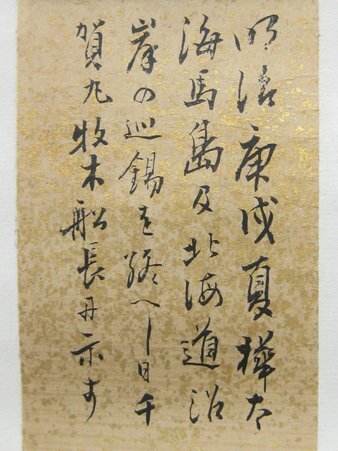 明治庚戌夏樺太
海馬島及北海道沿
岸の巡錫を終へし日千
賀丸牧木船長に示す